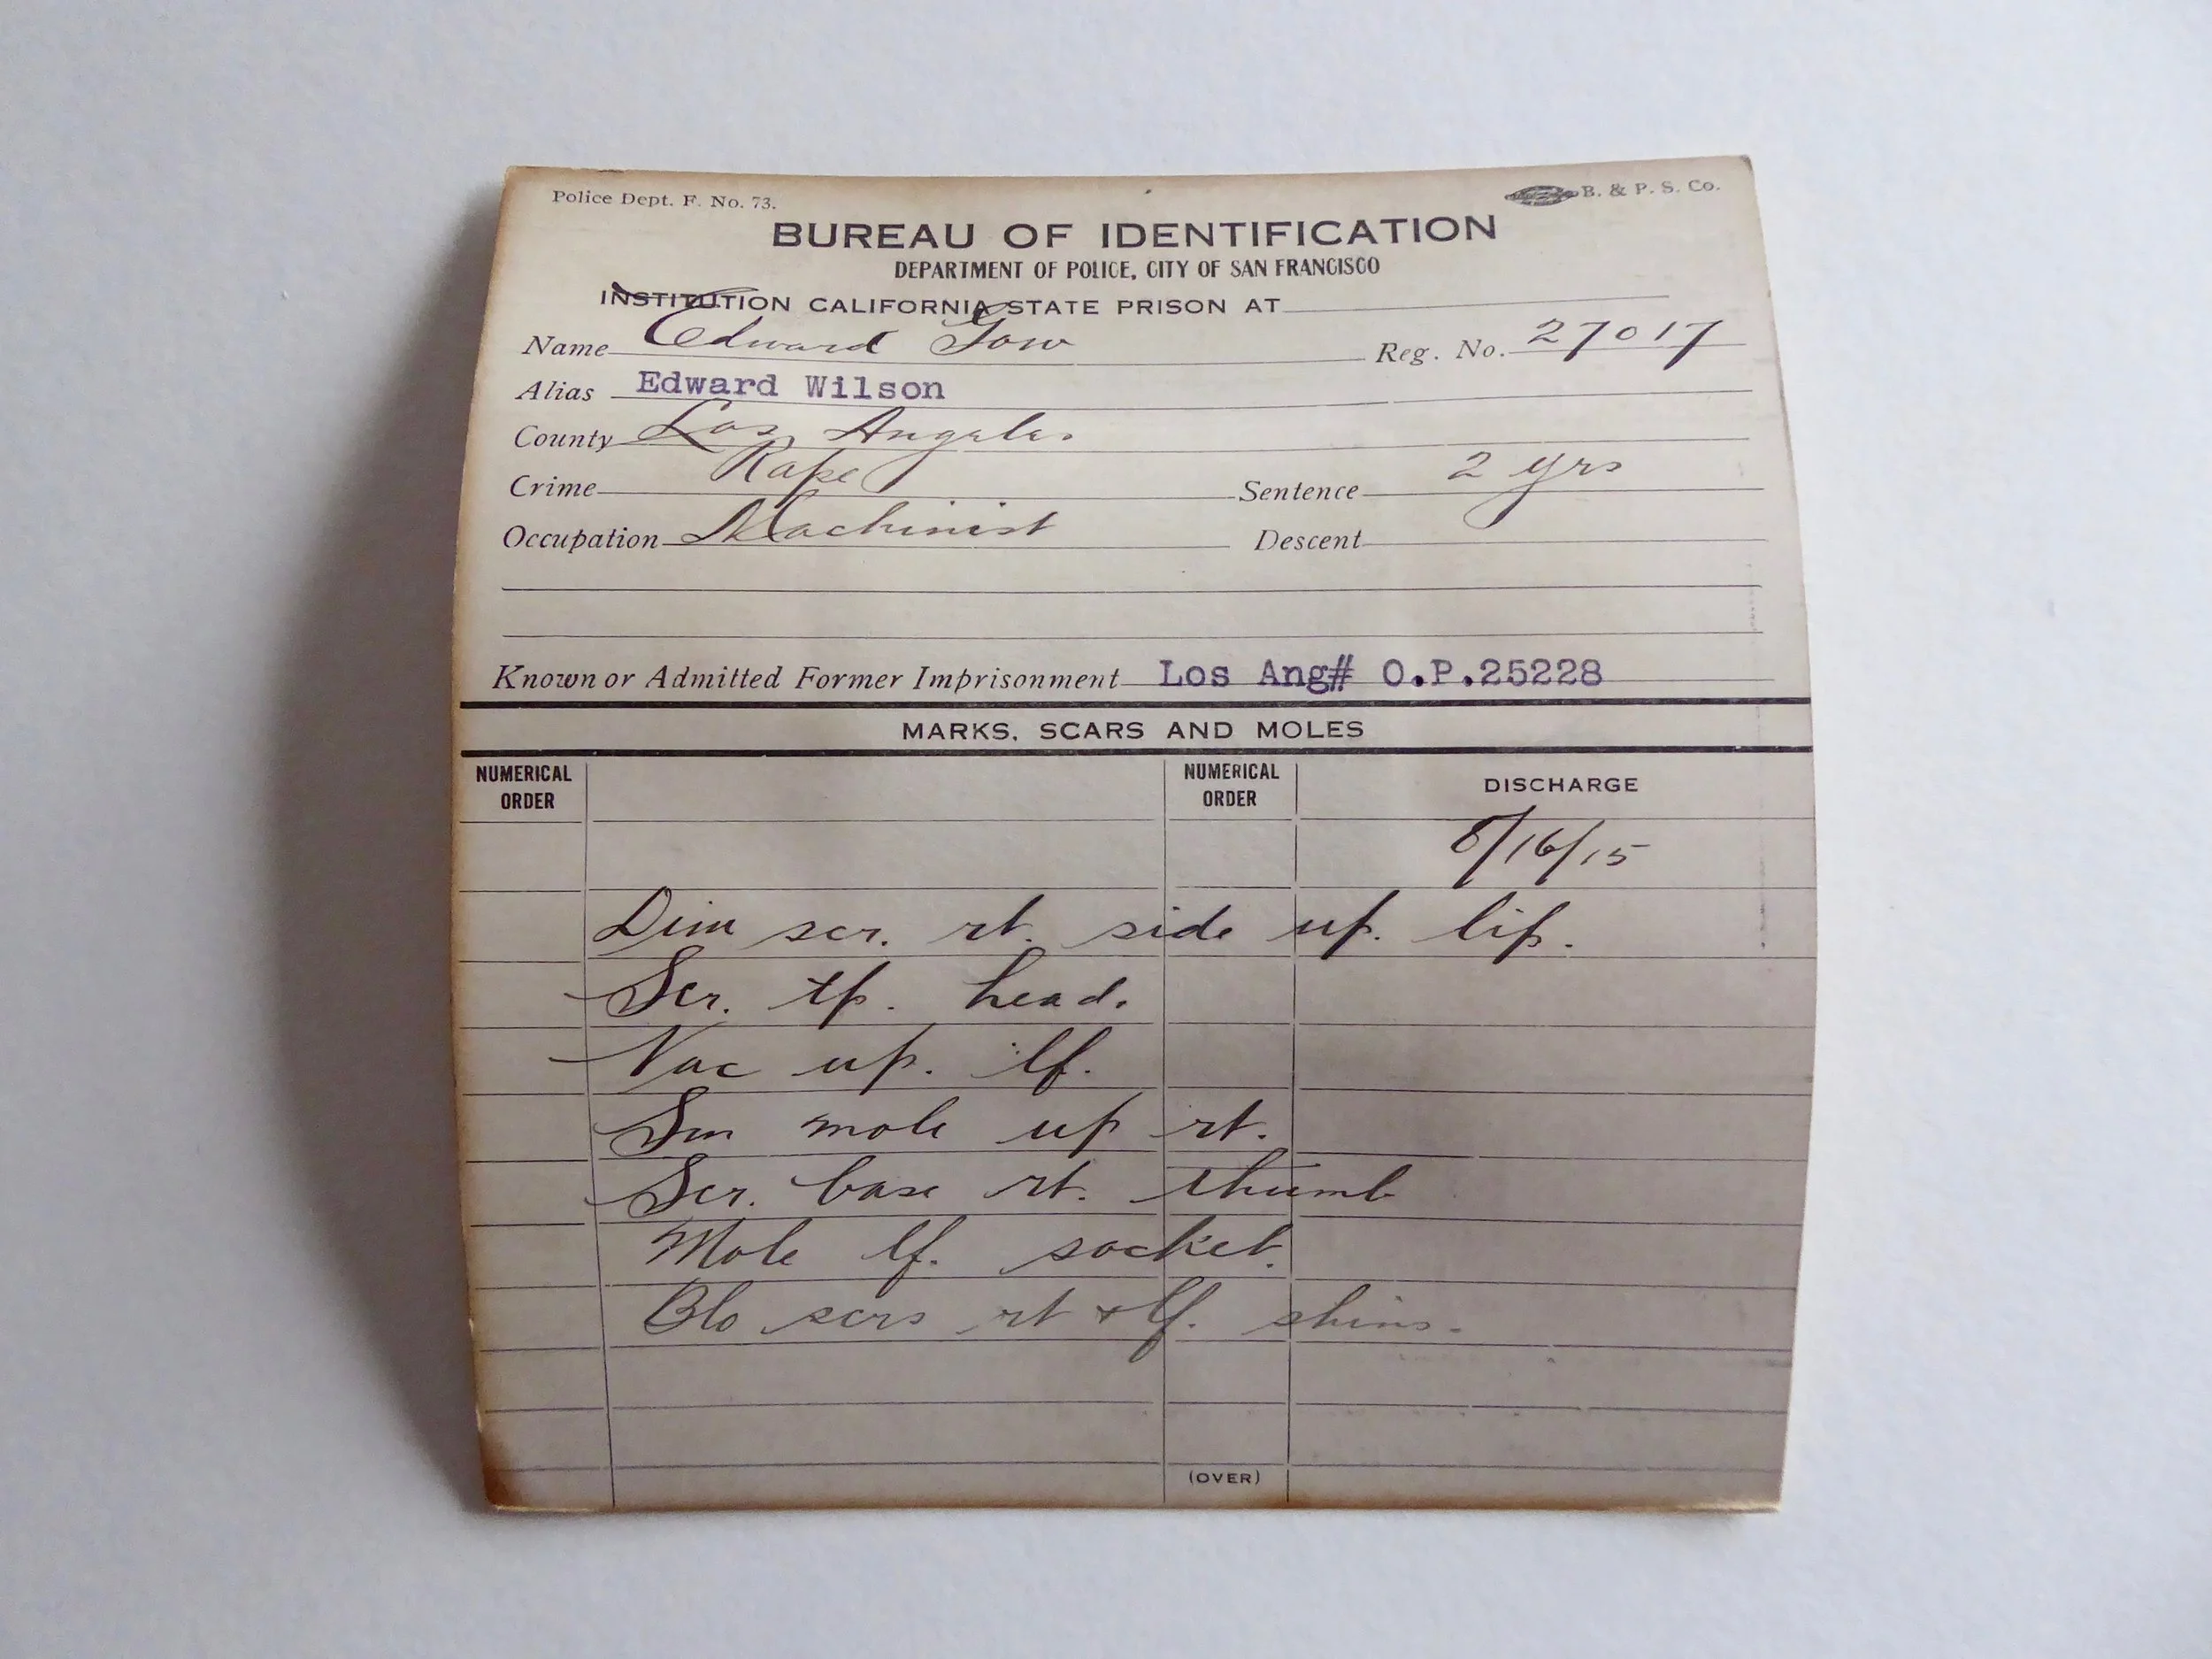 Police Dept. F. No. 73.
B. & P. S. Co.
BUREAU OF IDENTIFICATION
DEPARTMENT OF POLICE, CITY OF SAN FRANCISCO
INSTITUTION CALIFORNIA STATE PRISON AT
Name Edward Gow Reg. No. 27017
Alias Edward Wilson
County Los Angeles
Crime Rape Sentence 2 yrs
Occupation Machinist Descent
Known or Admitted Former Imprisonment Los Ang# O.P.25228
MARKS, SCARS AND MOLES
NUMERICAL ORDER NUMERICAL ORDER DISCHARGE
8/16/15
Dim scr. rt. side up. lip.
Scr. tp. head.
Vac up. lf.
Sm mole up rt.
Scr. base rt. thumb
Mole lf. socket.
Blo scrs rt & lf. shins.
(OVER)